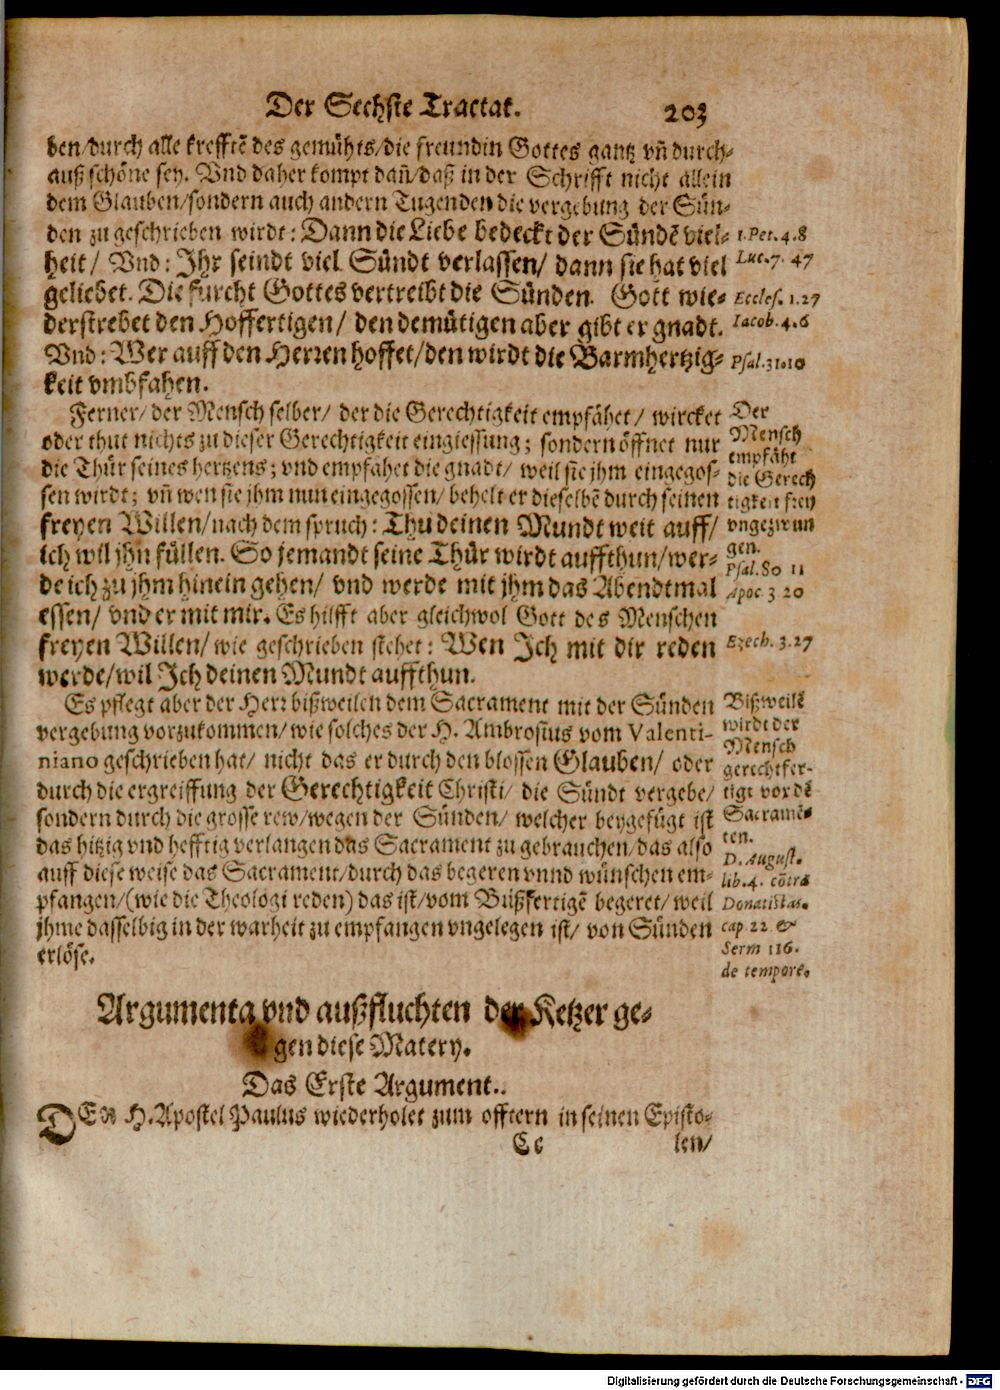 Der Sechste Tractat. 203
ben/durch alle krefftẽ des gemühts/die freundin Gottes gantz vñ durch-
auß schöne sey. Vnd daher kompt dañ/daß in der Schrifft nicht allein
dem Glauben/sondern auch andern Tugenden die vergebung der Sün-
den zu geschrieben wirdt: Dann die Liebe bedeckt der Sündẽ viel-
heit/ Vnd: Jhr seindt viel Sündt verlassen/ dann sie hat viel
geliebet. Die furcht Gottes vertreibt die Sünden. Gott wie-
derstrebet den Hoffertigen/ den demütigen aber gibt er gnadt.
Vnd: Wer auff den Herren hoffet/den wirdt die Barmhertzig-
keit vmbfahen.
1. Pet. 4. 8
Luc. 7. 47
Eccles. 1. 27
Iacob. 4. 6
Psal. 31. 10
Ferner/ der Mensch selber/ der die Gerechtigkeit empfähet/ wircket
oder thut nichts zu dieser Gerechtigkeit eingiessung; sondern öffnet nur
die Thür seines hertzens; vnd empfähet die gnadt/ weil sie jhm eingegos-
sen wirdt; vñ wen sie jhm nun eingegossen/ behelt er dieselbẽ durch seinen
freyen Willen/nach dem spruch: Thu deinen Mundt weit auff/
ich wil jhn füllen. So jemandt seine Thür wirdt auffthun/wer-
de ich zu jhm hinein gehen/ vnd werde mit jhm das Abendtmal
essen/ vnd er mit mir. Es hilfft aber gleichwol Gott des Menschen
freyen Willen/ wie geschrieben stehet: Wen Jch mit dir reden
werde/wil Jch deinen Mundt auffthun.
Der
Mensch
empfäht
die Gerech
tigkeit frey
vngezwun
gen.
Psal. 80 11
Apoc. 3 20
Ezech. 3. 27
Es pflegt aber der Herr bißweilen dem Sacrament mit der Sünden
vergebung vorzukommen/ wie solches der H. Ambrosius vom Valenti-
niano geschrieben hat/ nicht das er durch den blossen Glauben/ oder
durch die ergreiffung der Gerechtigkeit Christi/ die Sündt vergebe/
sondern durch die grosse rew/wegen der Sünden/ welcher beygefügt ist
das hitzig vnd hefftig verlangen das Sacrament zu gebrauchen/das also
auff diese weise das Sacrament/durch das begeren vnnd wünschen em-
pfangen/(wie die Theologi reden) das ist/vom Bußfertigẽ begeret/ weil
jhme dasselbig in der warheit zu empfangen vngelegen ist/ von Sünden
erlöse.
Bißweilẽ
wirdt der
Mensch
gerechtfer-
tigt vor dẽ
Sacramẽ-
ten.
D. August.
lib. 4. cõtra
Donatistas.
cap 22 &
Serm 116.
de tempore.
Argumenta vnd außfluchten der Ketzer ge-
gen diese Matery.
Das Erste Argument..
DER H. Apostel Paulus wiederholet zum offtern in seinen Episto-
Cc len/
Digitalisierung gefördert durch die Deutsche Forschungsgemeinschaft - DFG